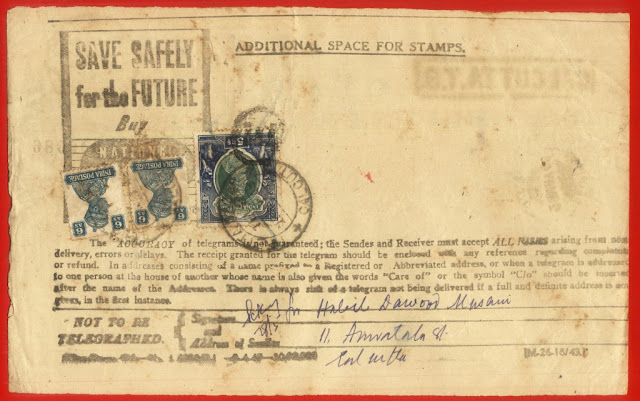 ADDITIONAL SPACE FOR STAMPS.
SAVE SAFELY
for the FUTURE
Buy
NATIONAL
INDIA POSTAGE
INDIA POSTAGE
9
9
CALCUTTA
The ACCURACY of telegrams is not guaranteed; the Sender and Receiver must accept ALL RISKS arising from non
delivery, errors or delays. The receipt granted for the telegram should be enclosed with any reference regarding complaints
or refund. In addresses consisting of a name prefixed to a Registered or Abbreviated address, or when a telegram is addressed
to one person at the house of another whose name is also given the words "Care of" or the symbol "C/o" should be inserted
after the name of the Addressee. There is always risk of a telegram not being delivered if a full and definite address is not
given, in the first instance.
NOT TO BE
TELEGRAPHED.
Signature
and
Address of Sender
Habib Dawood
11, Amratala St
Calcutta